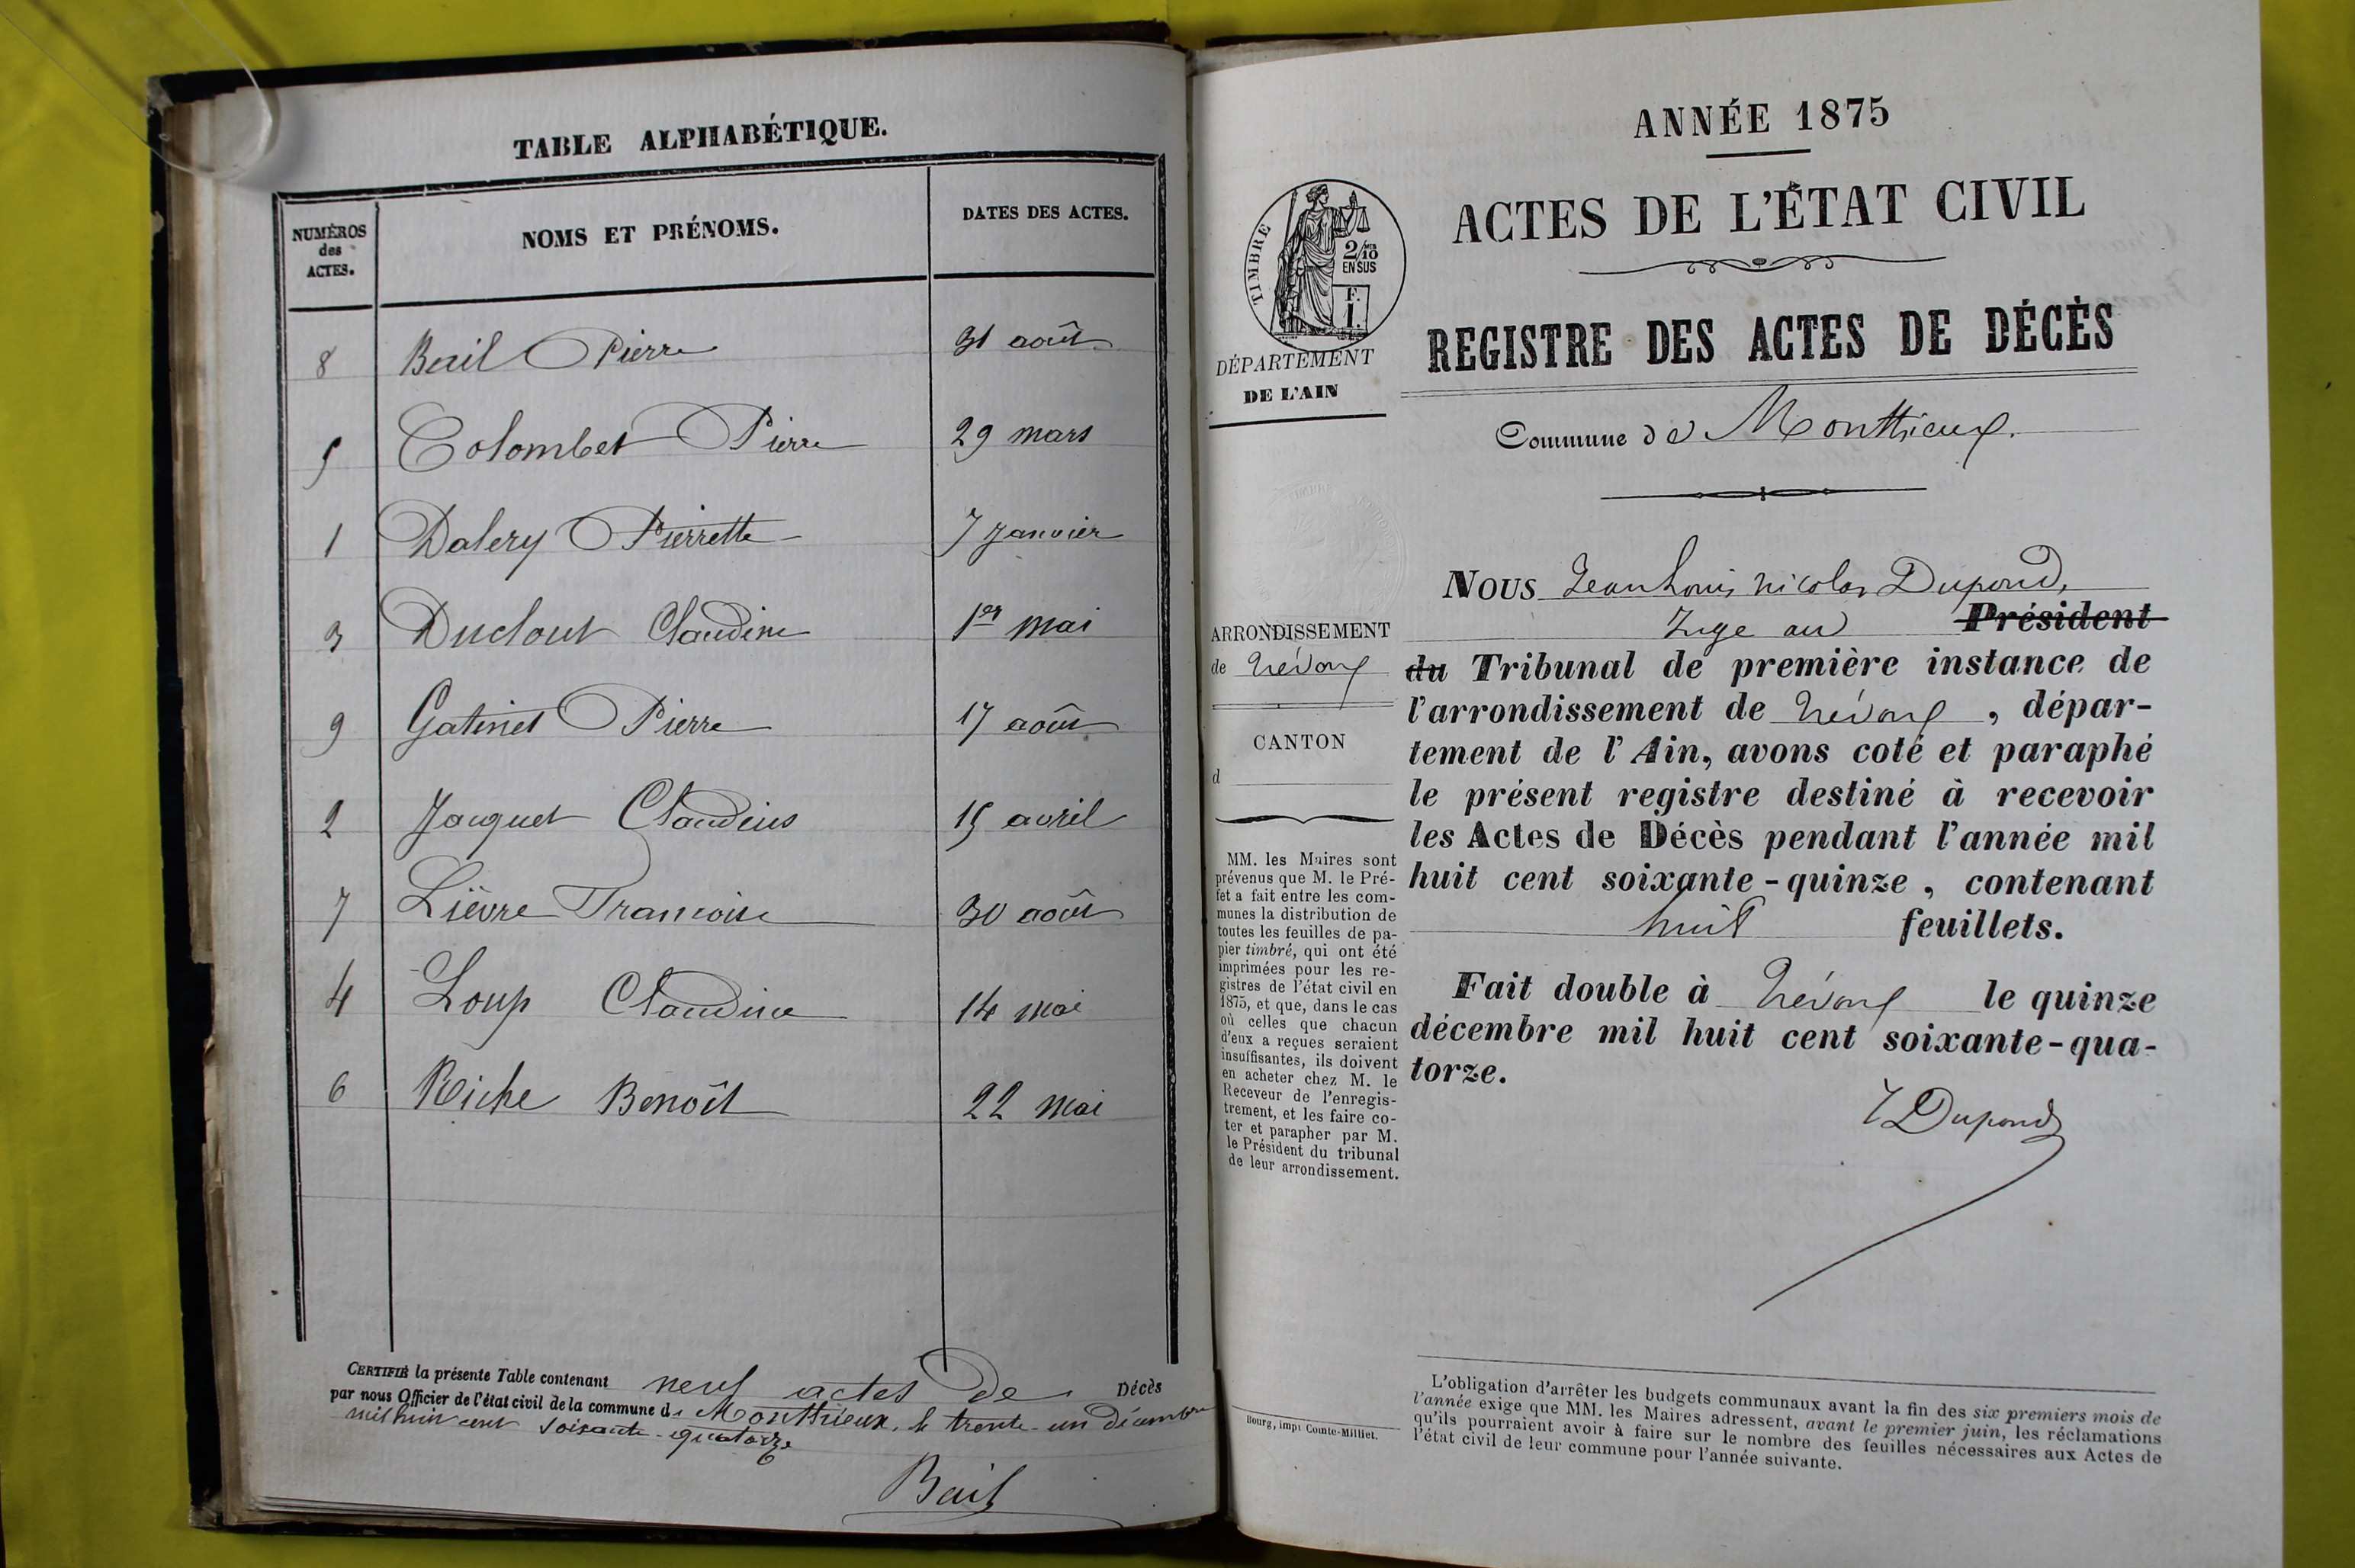 TABLE ALPHABÉTIQUE.
NUMÉROS des ACTES.
NOMS ET PRÉNOMS.
DATES DES ACTES.
8 Bail Pierre 31 août
5 Colombet Pierre 29 mars
1 Dalery Pierrette 7 Janvier
3 Duclout Claudine 1er mai
9 Gatinet Pierre 17 août
2 Jacquet Claudius 15 avril
7 Lièvre Francoise 30 août
4 Loup Claudine 14 mai
6 Riche Benoît 22 mai
CERTIFIÉ la présente Table contenant neuf actes de Décès
par nous Officier de l'état civil de la commune de Monthieux, le trente-un Décembre
mil huit cent soixante-quatorze
Bail
ANNÉE 1875
ACTES DE L'ÉTAT CIVIL
REGISTRE DES ACTES DE DÉCÈS
Commune de Monthieux.
TIMBRE
2/10 EN SUS
F. 1.
DÉPARTEMENT
DE L'AIN
ARRONDISSEMENT
de Trévoux
CANTON
d
MM. les Maires sont
prévenus que M. le Pré-
fet a fait entre les com-
munes la distribution de
toutes les feuilles de pa-
pier timbré, qui ont été
imprimées pour les re-
gistres de l'état civil en
1875, et que, dans le cas
où celles que chacun
d'eux a reçues seraient
insuffisantes, ils doivent
en acheter chez M. le
Receveur de l'enregis-
trement, et les faire co-
ter et parapher par M.
le Président du tribunal
de leur arrondissement.
Bourg, impr Comte-Milliet.
NOUS Jean Louis Nicolas Dupond,
Juge au Président
du Tribunal de première instance de
l'arrondissement de Trévoux, dépar-
tement de l'Ain, avons coté et paraphé
le présent registre destiné à recevoir
les Actes de Décès pendant l'année mil
huit cent soixante-quinze, contenant
huit feuillets.
Fait double à Trévoux le quinze
décembre mil huit cent soixante-qua-
torze.
Dupond
L'obligation d'arrêter les budgets communaux avant la fin des six premiers mois de
l'année exige que MM. les Maires adressent, avant le premier juin, les réclamations
qu'ils pourraient avoir à faire sur le nombre des feuilles nécessaires aux Actes de
l'état civil de leur commune pour l'année suivante.